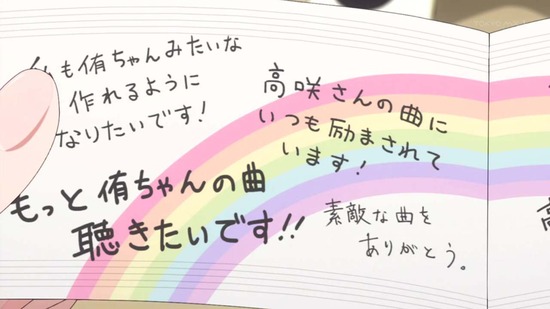 も侑ちゃんみたいな
作れるように
なりたいです!
高咲さんの曲に
いつも励まされて
います!
もっと侑ちゃんの曲
聴きたいです!!
素敵な曲を
ありがとう。